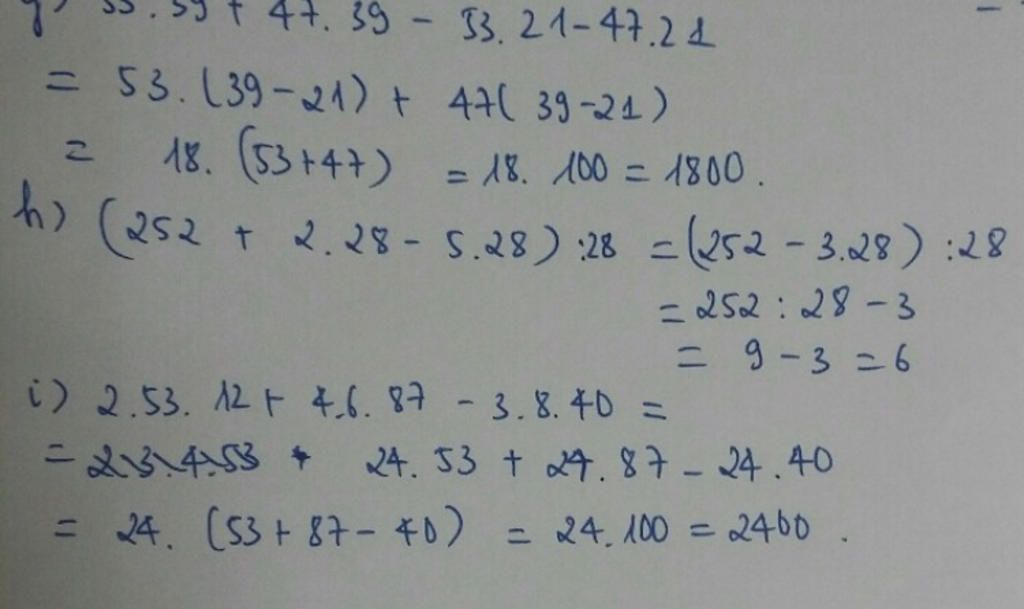 g) 53.39 + 47.39 - 53.21-47.21
= 53.(39-21) + 47( 39-21)
= 18. (53+47) = 18. 100 = 1800.
h) (252 + 2.28- 5.28) :28 = (252 - 3.28) :28
= 252 : 28 - 3
= 9 - 3 = 6
i) 2.53. 12 + 4.6. 87 - 3.8.40 =
= 24. 53 + 24. 87 - 24.40
= 24. (53 + 87 - 40) = 24.100 = 2400 .